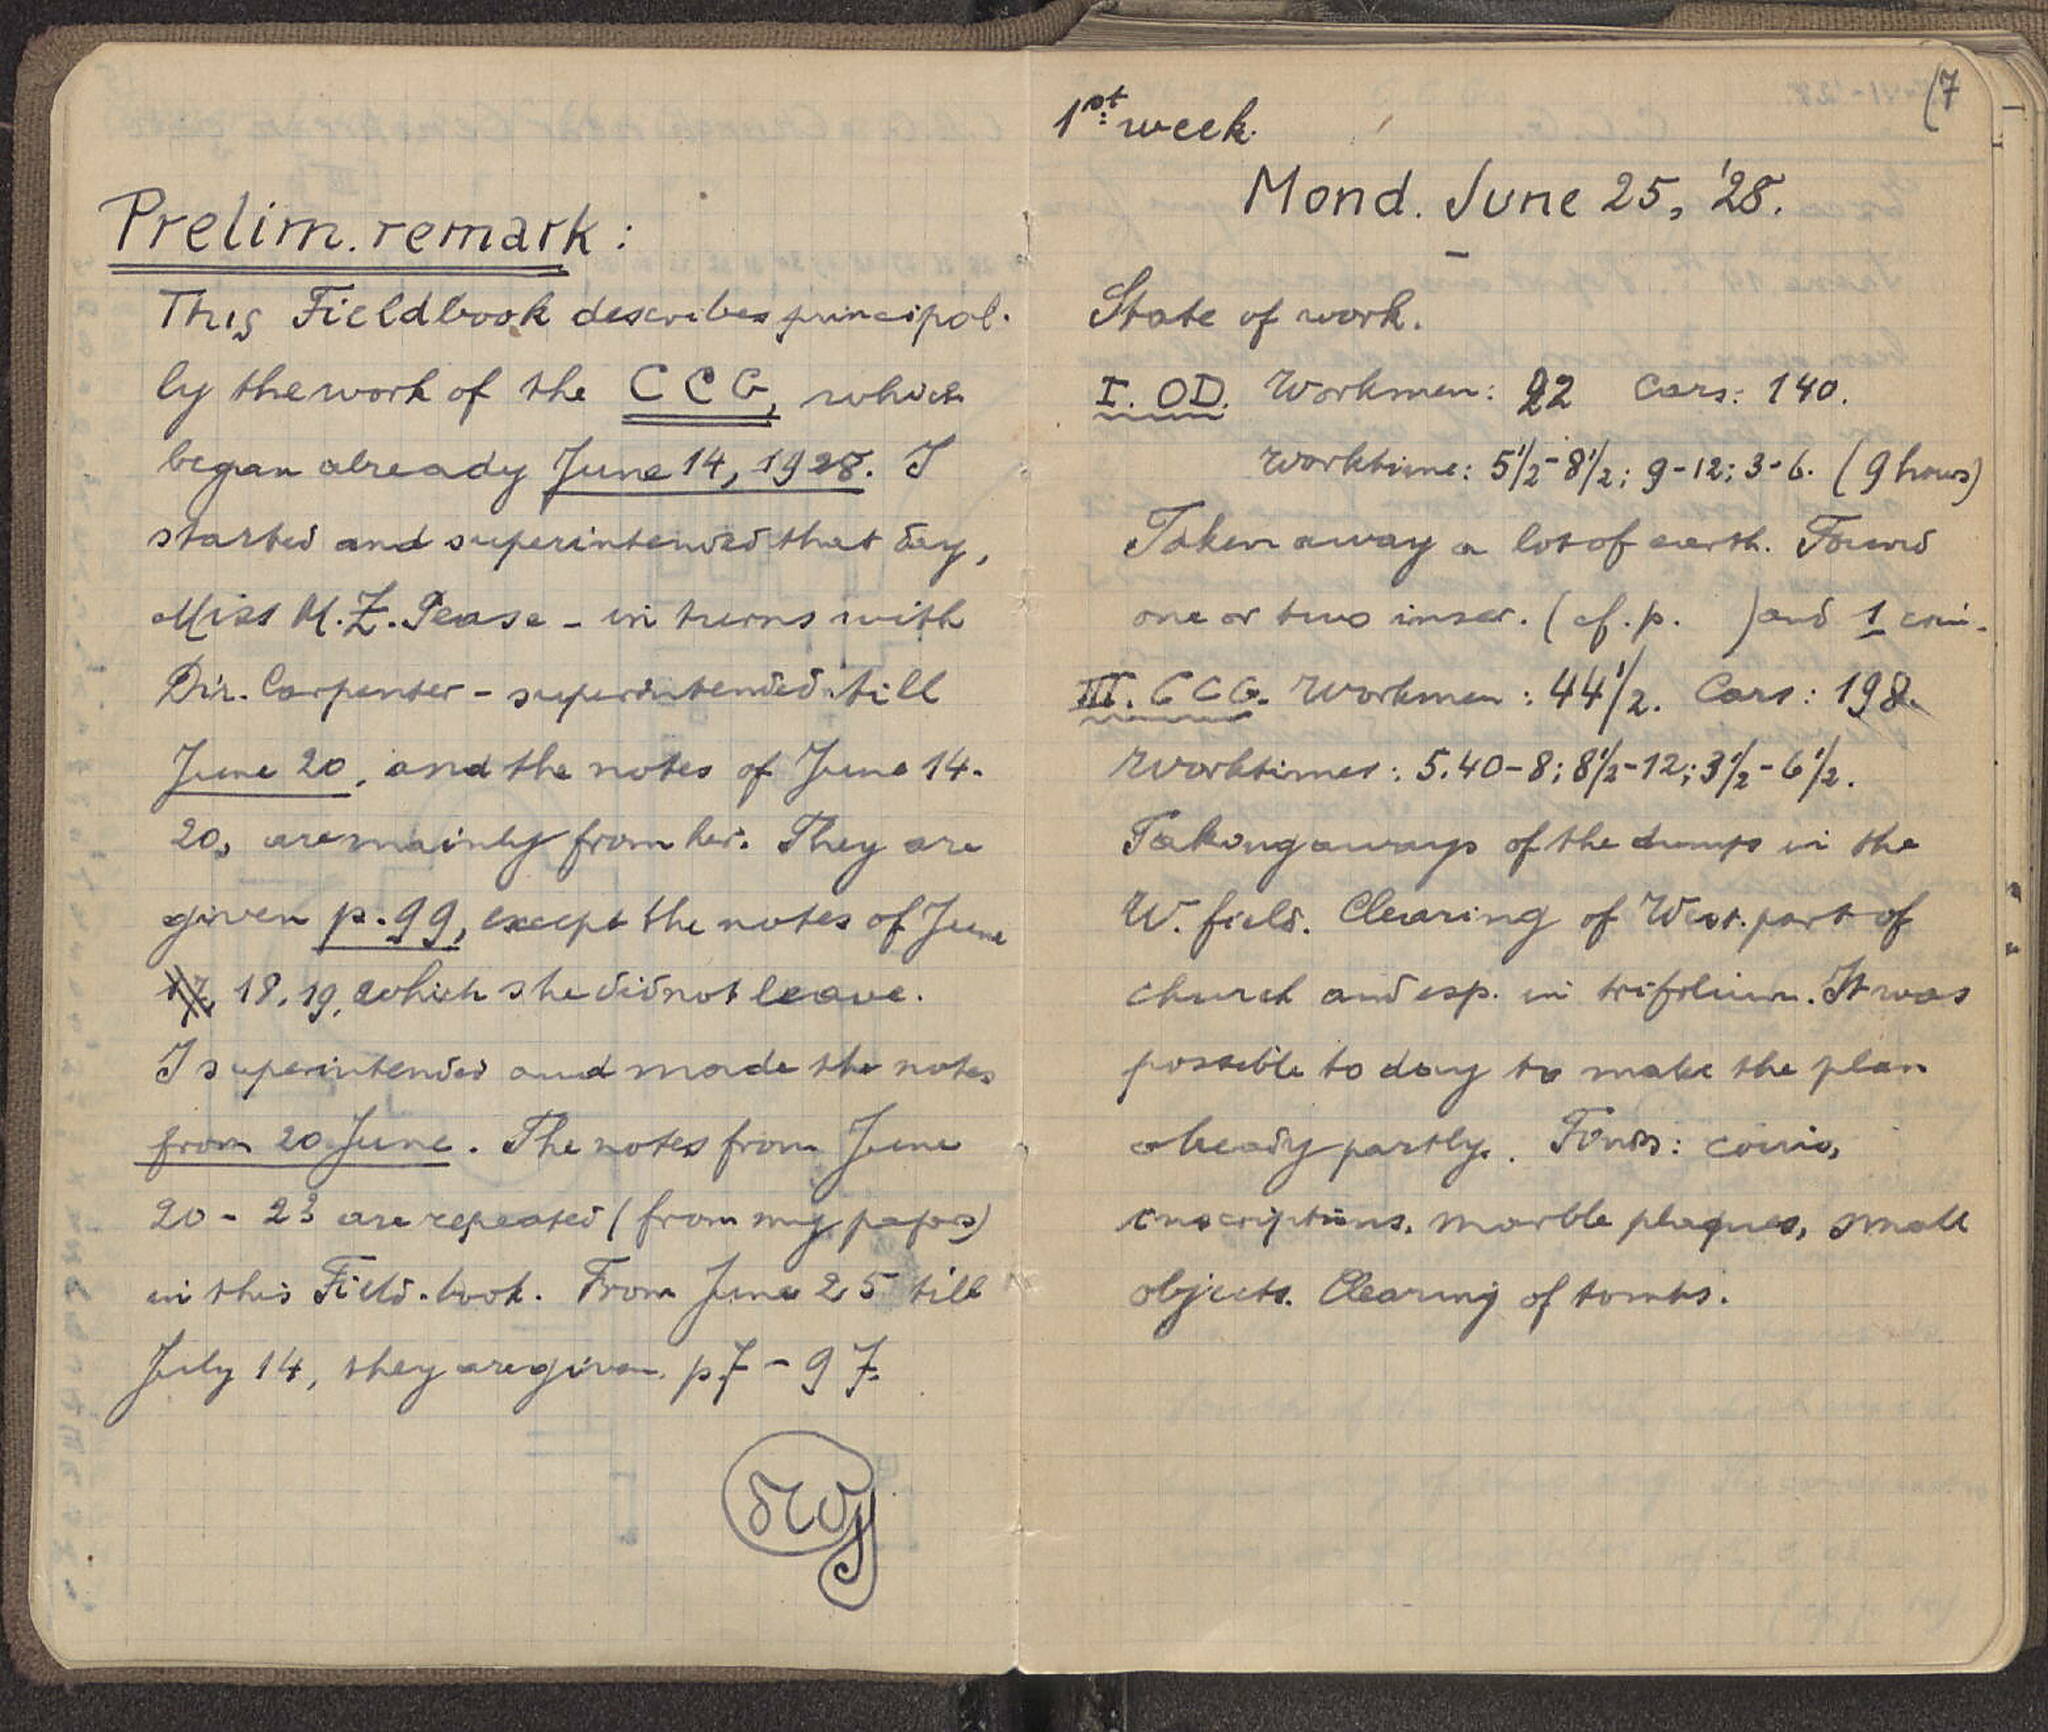 Prelim. remark:
This Fieldbook describes principal-
ly the work of the CCG, which
began already June 14, 1928. I
started and superintended that day,
Miss M. Z. Pease - in turns with
Dir. Carpenter - superintended till
June 20, and the notes of June 14-
20, are mainly from her. They are
given p. 99, except the notes of June
17, 18, 19, which she did not leave.
I superintended and made the notes
from 20 June. The notes from June
20 - 23 are repeated (from my papers)
in this Field-book. From June 25 till
July 14, they are given p 7 - 97.
(7
1st week.
Mond. June 25, '28.
State of work.
I. OD. Workmen: 22 Cars: 140.
Worktime: 5 1/2 - 8 1/2; 9 - 12; 3 - 6. (9 hours)
Taken away a lot of earth. Found
one or two inscr. (cf. p. ) and 1 coin.
III. CCG. Workmen: 44 1/2. Cars: 198.
Worktimes: 5.40 - 8; 8 1/2 - 12; 3 1/2 - 6 1/2.
Taking aways of the dumps in the
W. field. Clearing of West. part of
church and esp. in trifolium. It was
possible to day to make the plan
already partly. Finds: coins,
inscriptions, marble plaques, small
objects. Clearing of tombs.